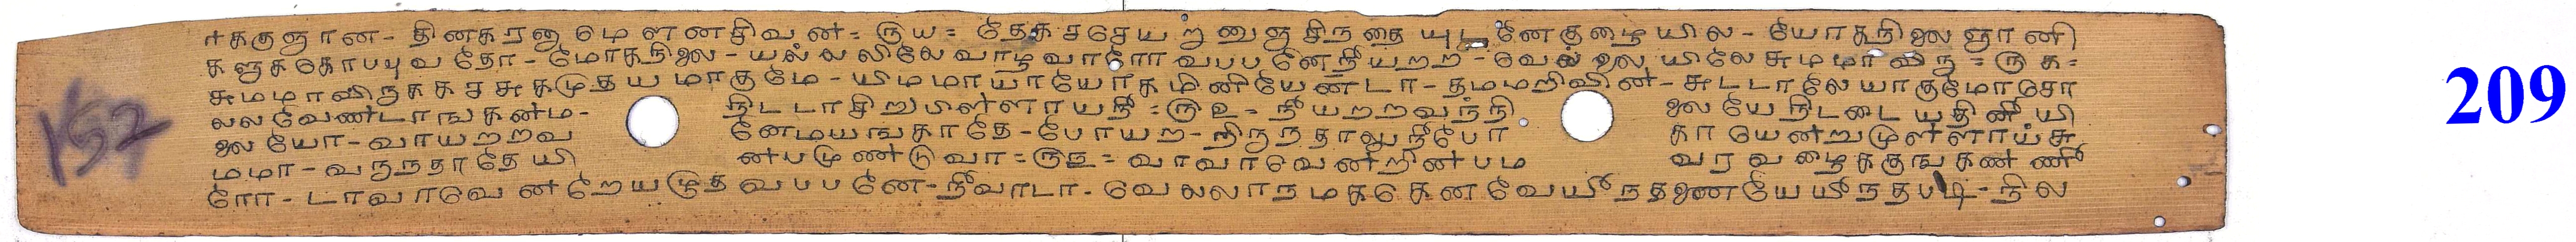 ரககுஞான - தினகரனு மெளனசிவன = ருய = தேகசசெயறனுஞ சிநதை யுடனேகுழையில - யோகநிலை ஞானி
களுககொபபுவதோ - மோகநிலை - யலலலிலேவாழவாரோ வபபனேநீயறற - வெலலை யிலேசுமமாவிரு = ருக =
சுமமாவிருககசசுகமுதய மாகுமே - யிமமாயாயோகமினியேனடா - தமமறிவின - சுடடாலேயாகுமோசொ
லலவேணடாஙகனம - நிடடாசிறுபிளளாயநீ = ருஉ = நீயறறவநநி லையேநிடடை யதினீ யி
லையோ - வாயறறவ னேமயஙகாதே - போயற - றிருநதாலுநீபோ காயெனறுமுளளாயசு
மமா - வருநதாதேயி னபமுணடுவா = ருந = வாவாவெனறினபம வரவழைககுஙகணணீ
ரோ - டாவாவெனறேயடுத வபபனே - நீவாடா - வெலலாநமககெனவேயீநதனையேயீநதபடி - நில
152
209